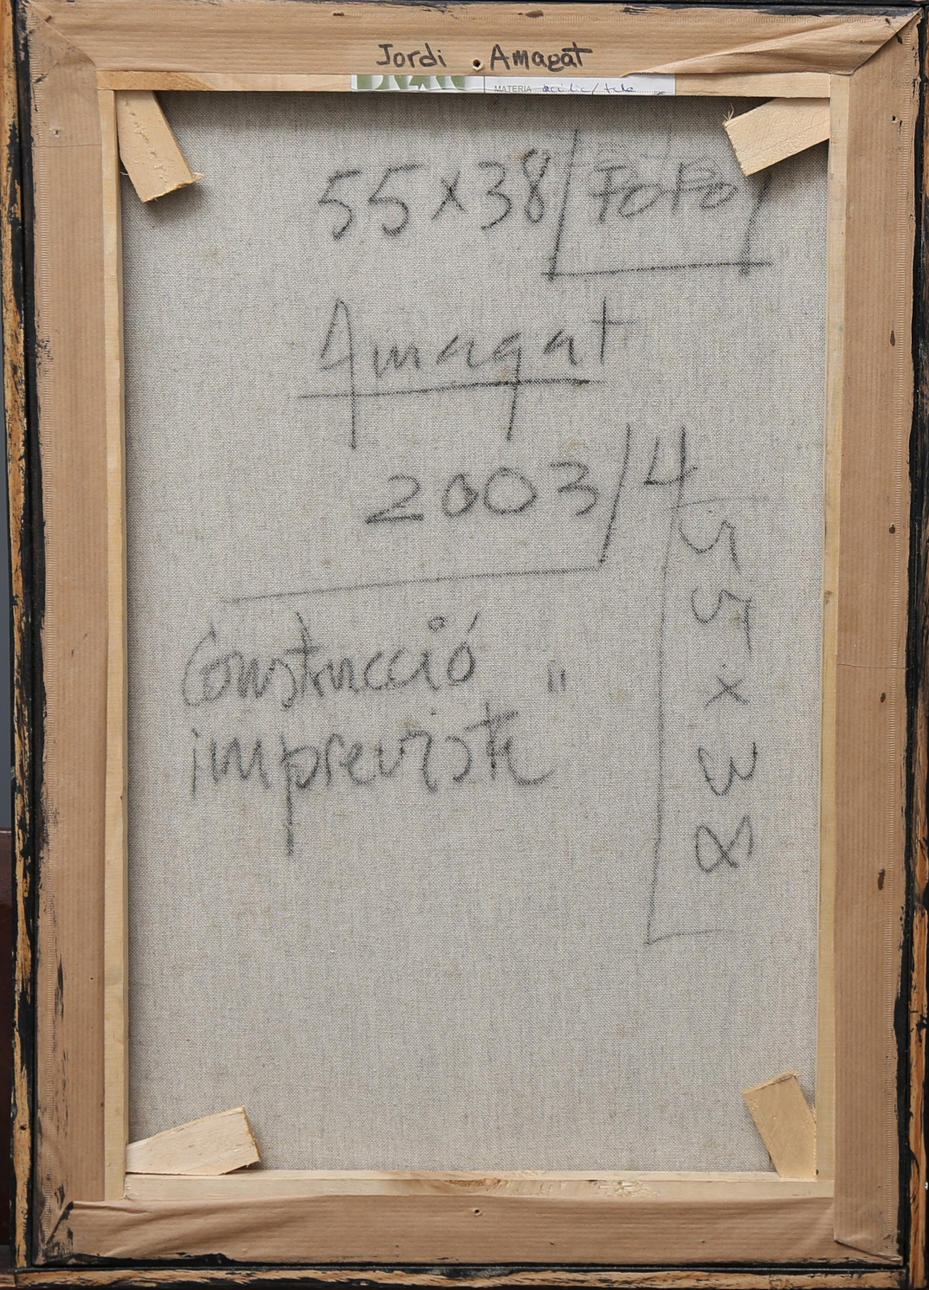 Jordi Amagat
MATERIA acrílic/tela
55x38/
Amagat
2003/4
Construcció
imprevista "
55x38